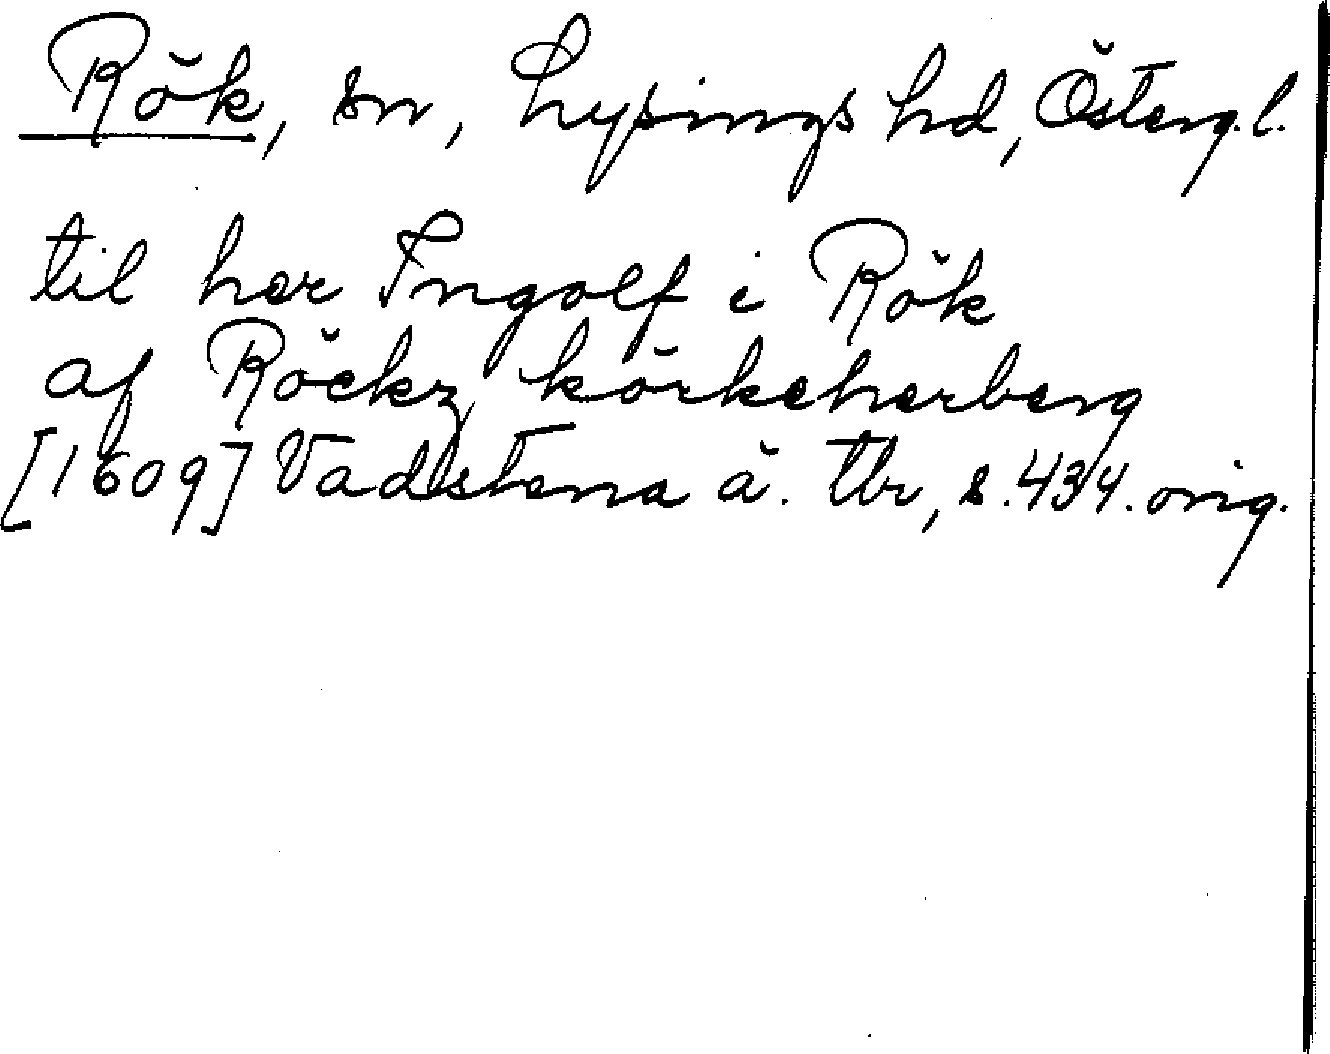 Rök, sn, Lysings hd, Österg.l.
til her Ingolf i Rök
af Röckz körkeherberg
[1609] Vadstena ä. tbr, s. 434. orig.